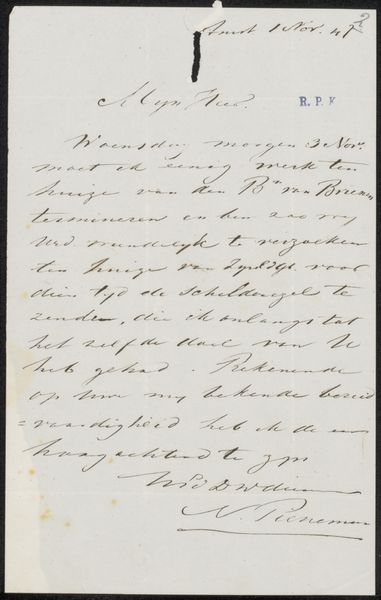 Amst 1 Nov. 47
2
Mijn Heer.
R. P. K
Woensdag morgen 3 Nov.
moet ik eenig werk ten
huize van den Bn van Brienen
termineren en ben zoo vry
UEd. vriendelyk te verzoeken
ten huize van ZynEdGt. voor
dien tyd de schilderezel te
zenden, die ik onlangs tot
het zelfde doel van U
heb gehad. Rekenende
op Uwe my bekende bereid
=vaardigheid heb ik de eer
hoogachtend te zyn
UEd DWdienaar
N. Pieneman